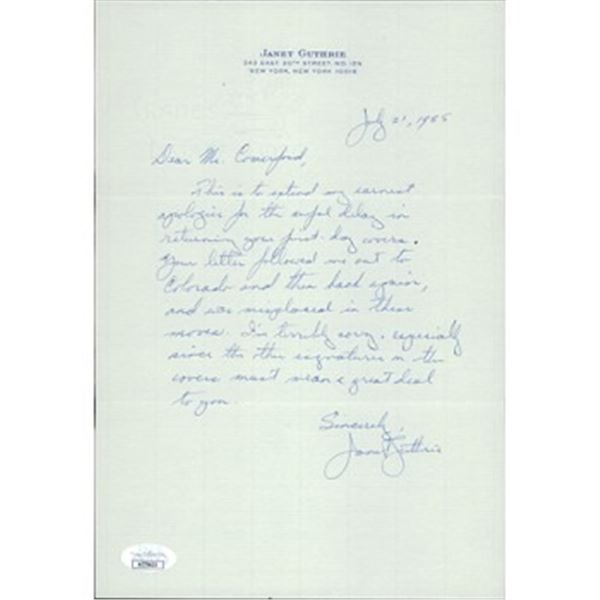 JANET GUTHRIE
NEW YORK, NEW YORK
July 21, 1985
Dear Mr. Comerford,
This is to extend my earnest
apologies for the awful delay in
returning your first-day covers.
Your letter followed me out to
Colorado and then back again,
and was misplaced in these
moves. I'm terribly sorry, especially
since the other signatures on the
covers must mean a great deal
to you.
Sincerely,
Janet Guthrie